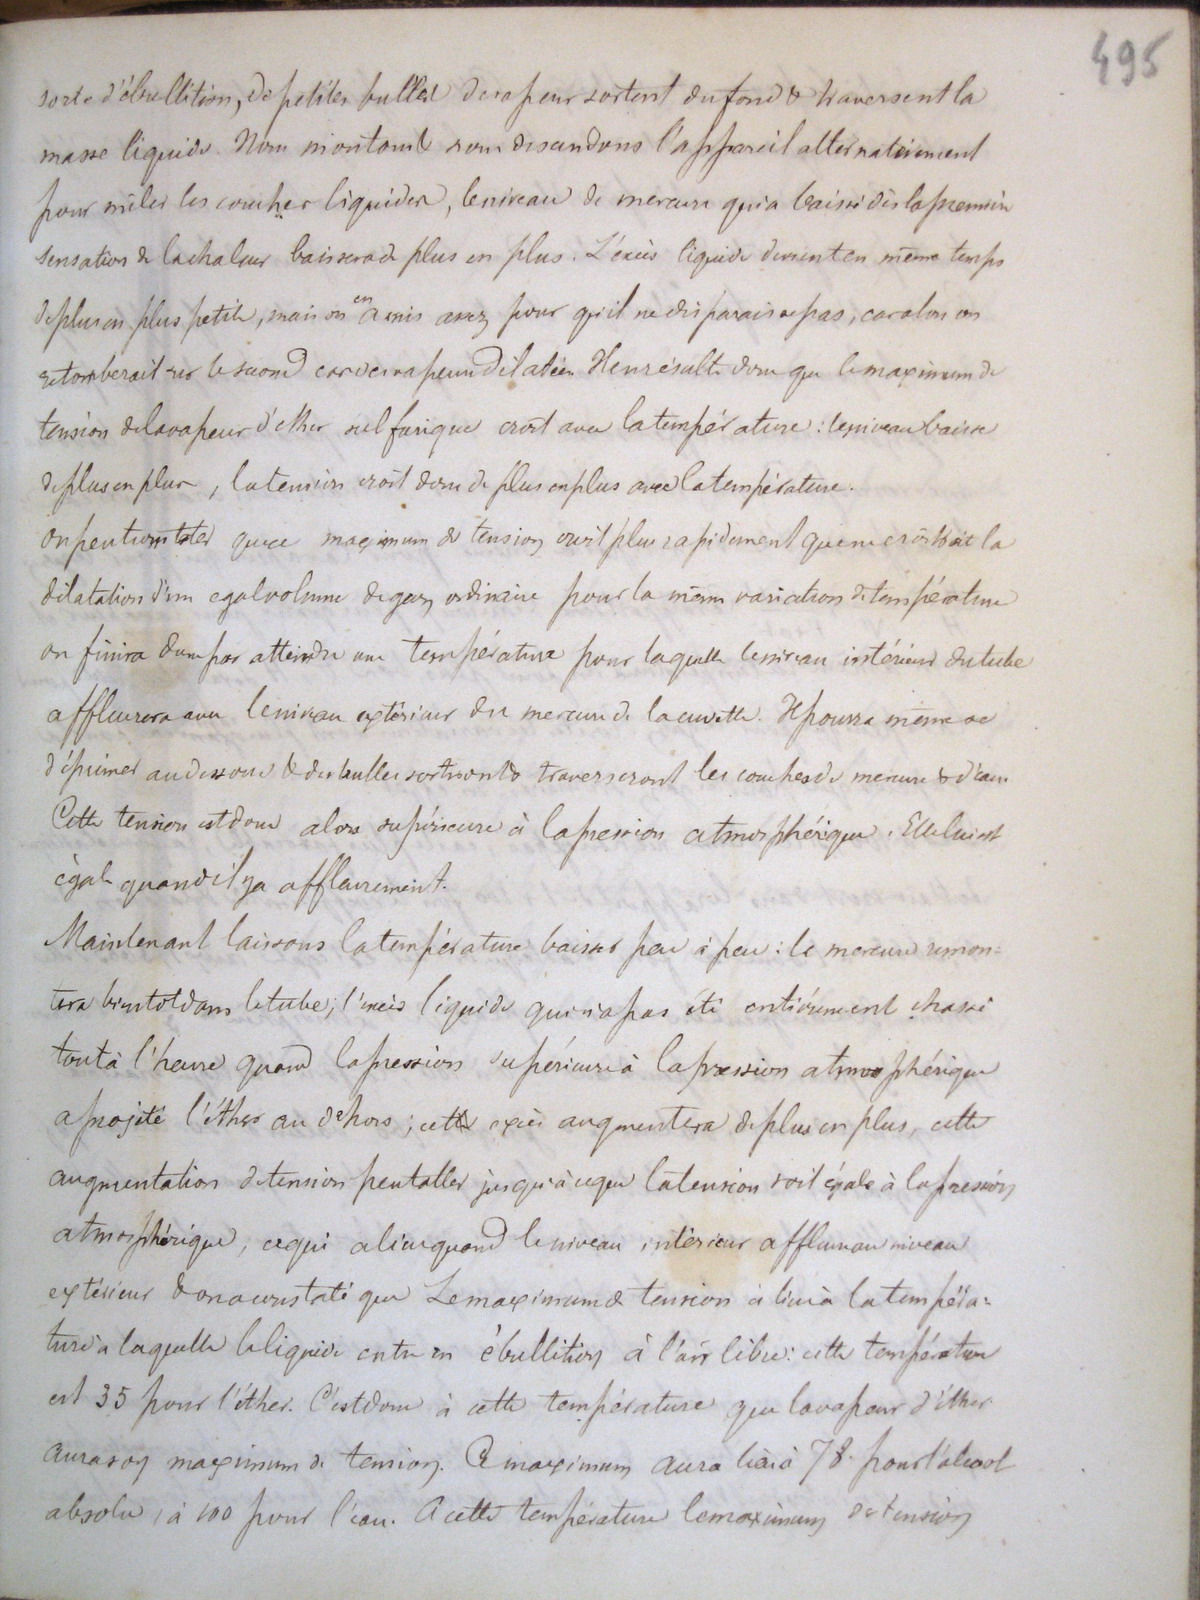 495
sorte d'ébullition, de petites bulles de vapeur sortent du fond & traversent la
masse liquide. Nous montons nous descendons l'appareil alternativement
pour mêler les couches liquides, le niveau de mercure qui a baissé dès la première
sensation de la chaleur baissera de plus en plus. L'excès liquide devient en même temps
de plus en plus petite, mais on en a mis assez pour qu'il ne disparaisse pas, car alors on
retomberait sur le second cas de vapeur dilatée. Il en résulte donc que le maximum de
tension de la vapeur d'éther sulfurique croît avec la température : le niveau baisse
de plus en plus, la tension croît donc de plus en plus avec la température.
on peut constater que ce maximum de tension croît plus rapidement que ne croîtrait la
dilatation d'un egal volume de gaz ordinaire pour la même variation de température
on finira donc par atteindre une température pour laquelle le niveau intérieur du tube
affleurera avec le niveau extérieur du mercure de la cuvette. Il pourra même se
déprimer au dessous & des bulles sortiront & traverseront les couches de mercure & d'eau
Cette tension est donc alors supérieure à la pression atmosphérique. Elle lui est
égale quand il y a affleurement.
Maintenant laissons la température baisser peu à peu : le mercure remon=
tera bientot dans le tube; l'excès liquide qui n'a pas été entièrement chassé
tout à l'heure quand la pression supérieure à la pression atmosphérique
a projeté l'éther au dehors ; cette excès augmentera de plus en plus, cette
augmentation de tension peut aller jusqu'à ce que la tension soit égale à la pression
atmosphérique, ce qui a lieu quand le niveau intérieur affleure au niveau
extérieur & on a constaté que Le maximum de tension a lieu à la tempéra=
ture à laquelle le liquide entre en ébullition à l'air libre: cette température
est 35 pour l'éther. C'est donc à cette température que la vapeur d'éther
aura son maximum de tension. Ce maximum aura lieu à 78. pour l'alcool
absolu, à 100 pour l'eau. A cette température le maximum de tension